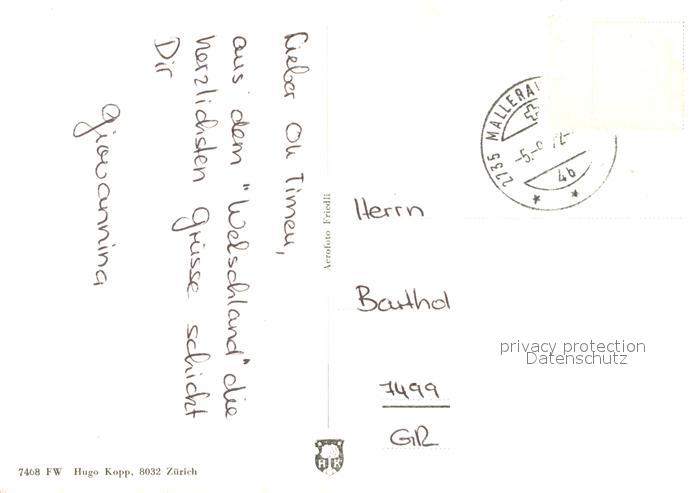 Lieber Oli Timeu,
aus dem "Welschland" die
herzlichsten Grüsse schickt
Dir
Giovannina
Aerofoto Friedli
2735 MALLERA
-5.-9
4b
Herrn
Barthol
7499
GR
privacy protection
Datenschutz
HK
7468 FW Hugo Kopp, 8032 Zürich